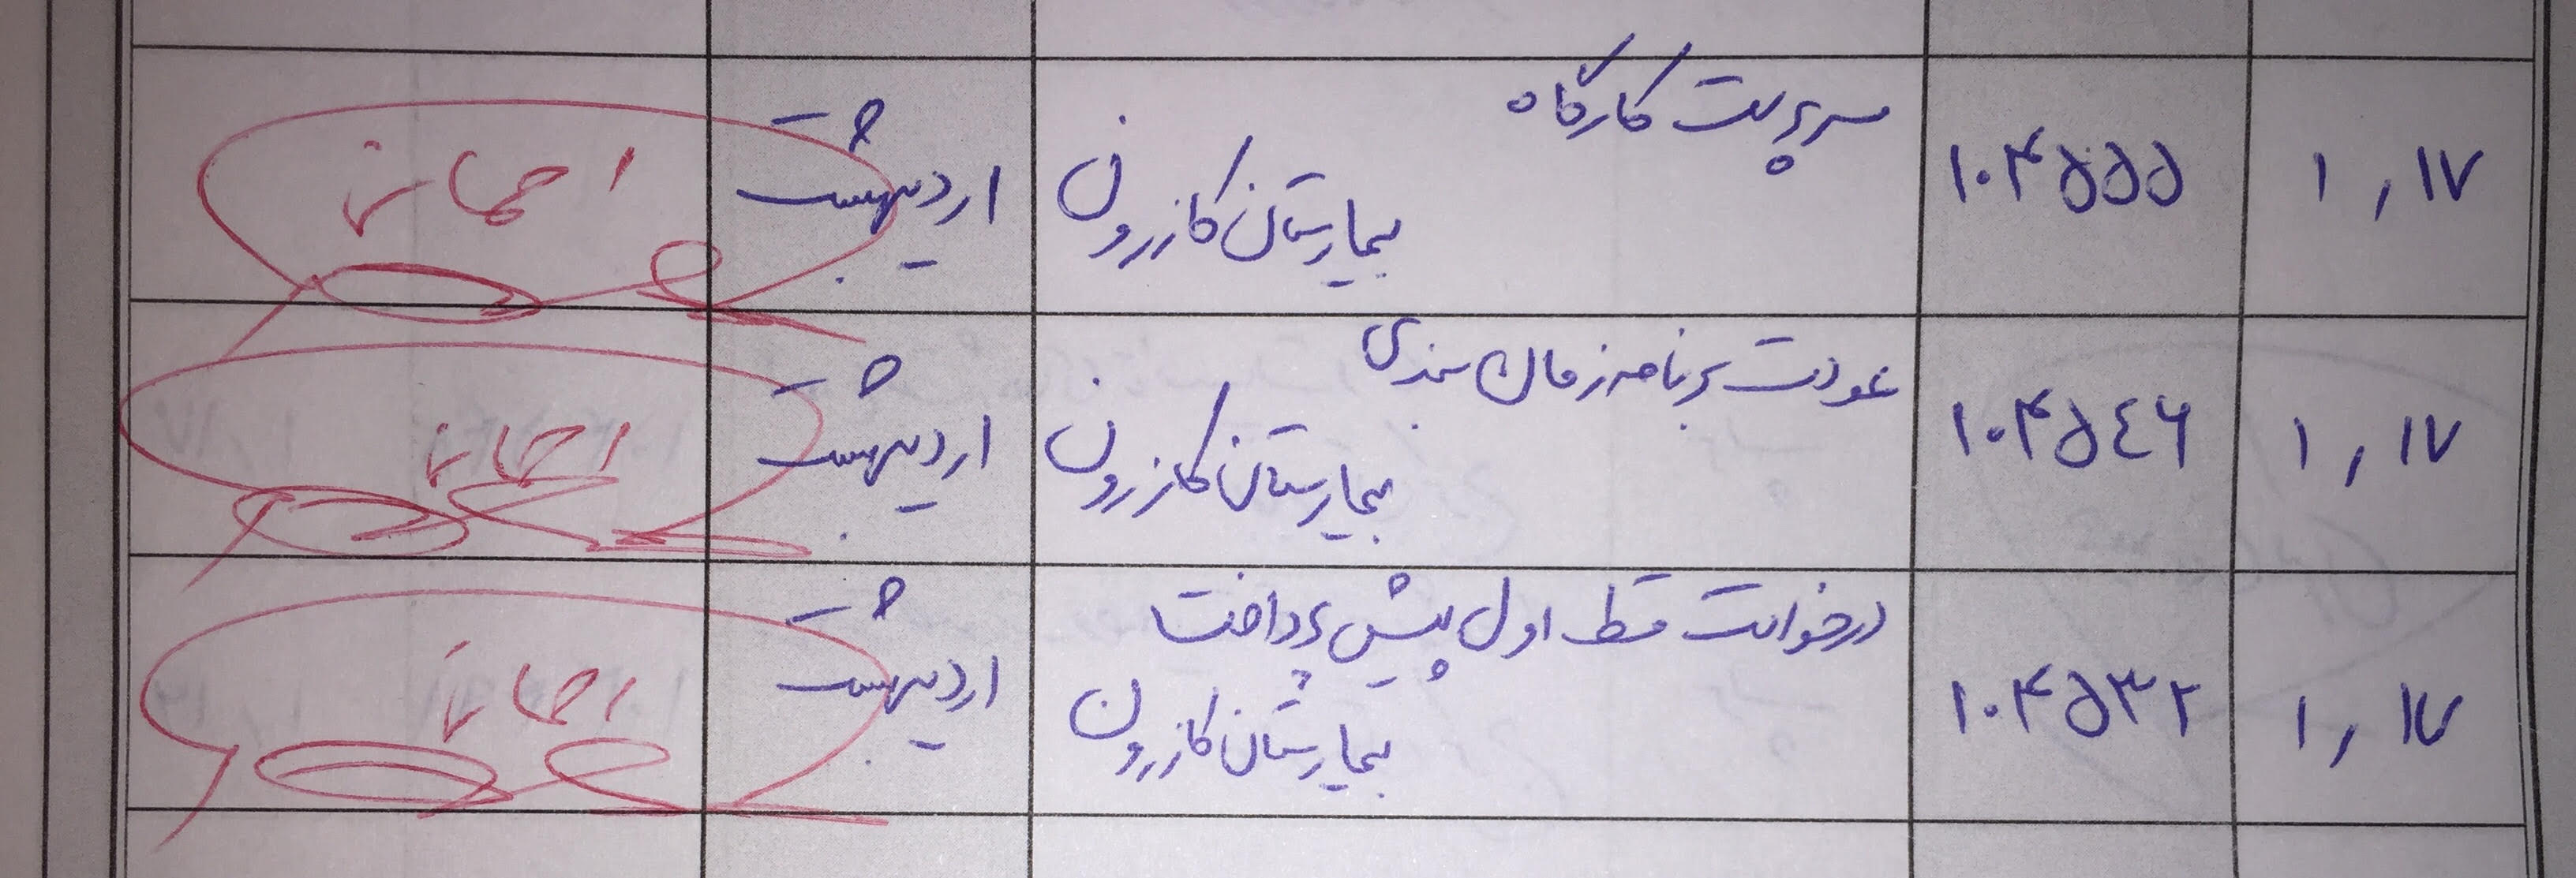 ۱,۱۷ ۱۰۴۵۵۵ سرپرست کارگاه
بیمارستان کازرون اردیبهشت
۱,۱۷ ۱۰۴۵۴۶ عودت برنامه زمان بندی
بیمارستان کازرون اردیبهشت
۱,۱۷ ۱۰۴۵۳۲ درخواست قسط اول پیش پرداخت
بیمارستان کازرون اردیبهشت